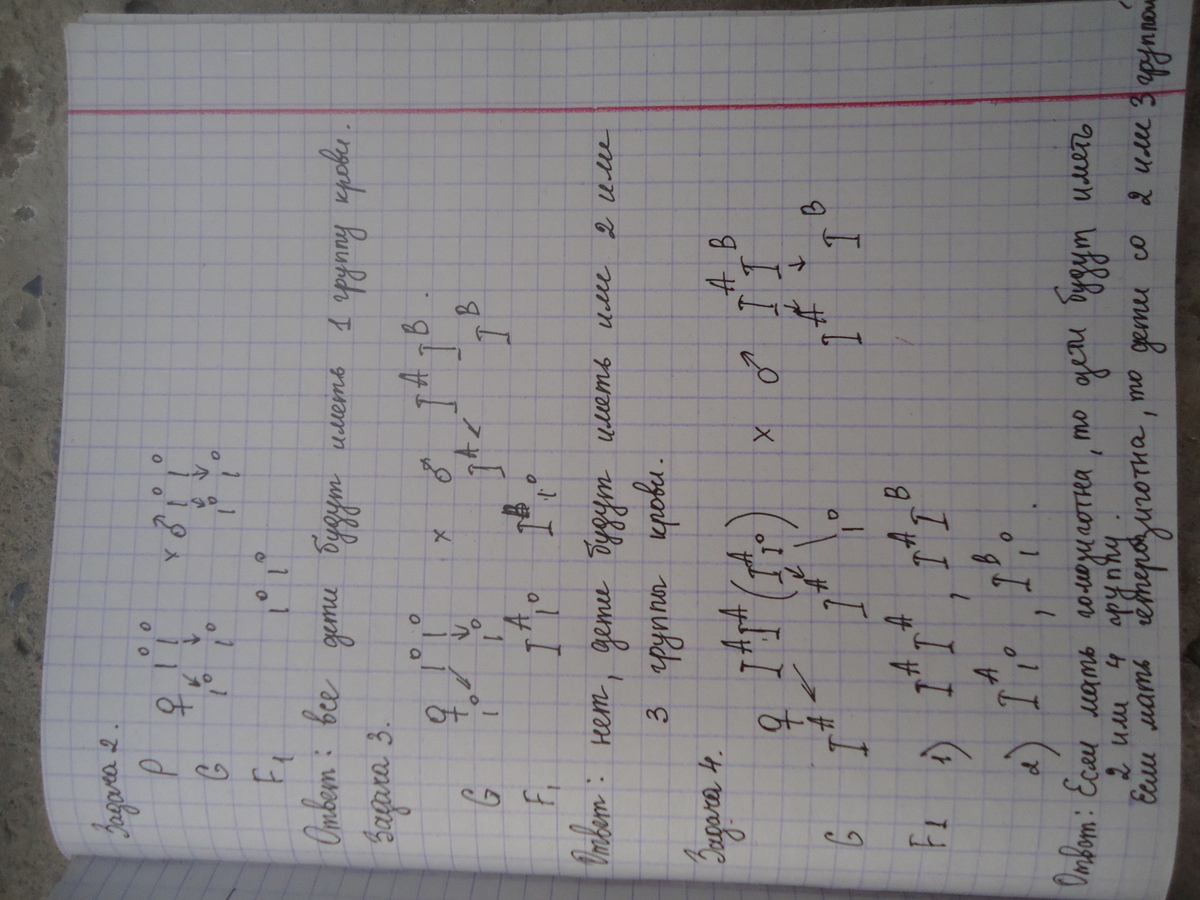 Задача 2.
P ♀ i⁰ i⁰ × ♂ i⁰ i⁰
G i⁰ i⁰ i⁰ i⁰
F₁ i⁰ i⁰
Ответ: все дети будут иметь 1 группу крови.
Задача 3.
♀ i⁰ i⁰ × ♂ Iᴬ Iᴮ.
G i⁰ i⁰ Iᴬ Iᴮ
F₁ Iᴬ i⁰ Iᴮ i⁰
Ответ: нет, дети будут иметь или 2 или
3 группы крови.
Задача 4.
♀ IᴬIᴬ (Iᴬ i⁰) × ♂ Iᴬ Iᴮ
G Iᴬ Iᴬ i⁰ Iᴬ Iᴮ
F1 1) Iᴬ Iᴬ, Iᴬ Iᴮ
2) Iᴬ i⁰, Iᴮ i⁰.
Ответ: Если мать гомозиготна, то дети будут иметь
2 или 4 группу.
Если мать гетерозиготна, то дети со 2 или 3 группой